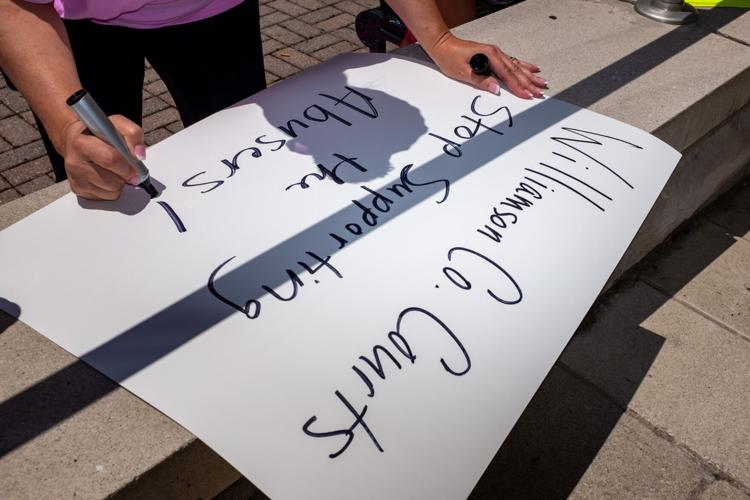 Williamson Co. Courts
Stop Supporting
the
Abusers!